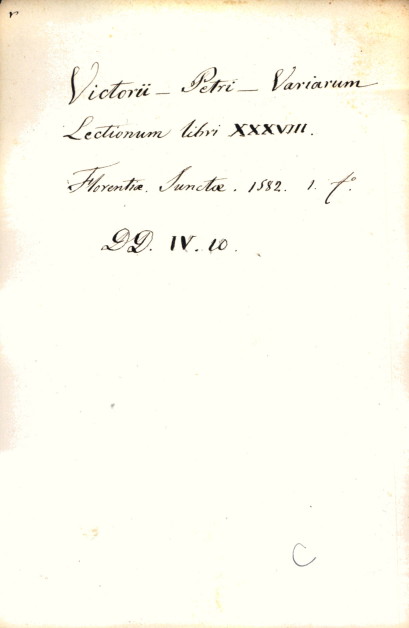 Victorii - Petri - Variarum
Lectionum libri XXXVIII.
Florentiæ. Junctæ. 1582. 1. fº.
DD. IV. 10.
C